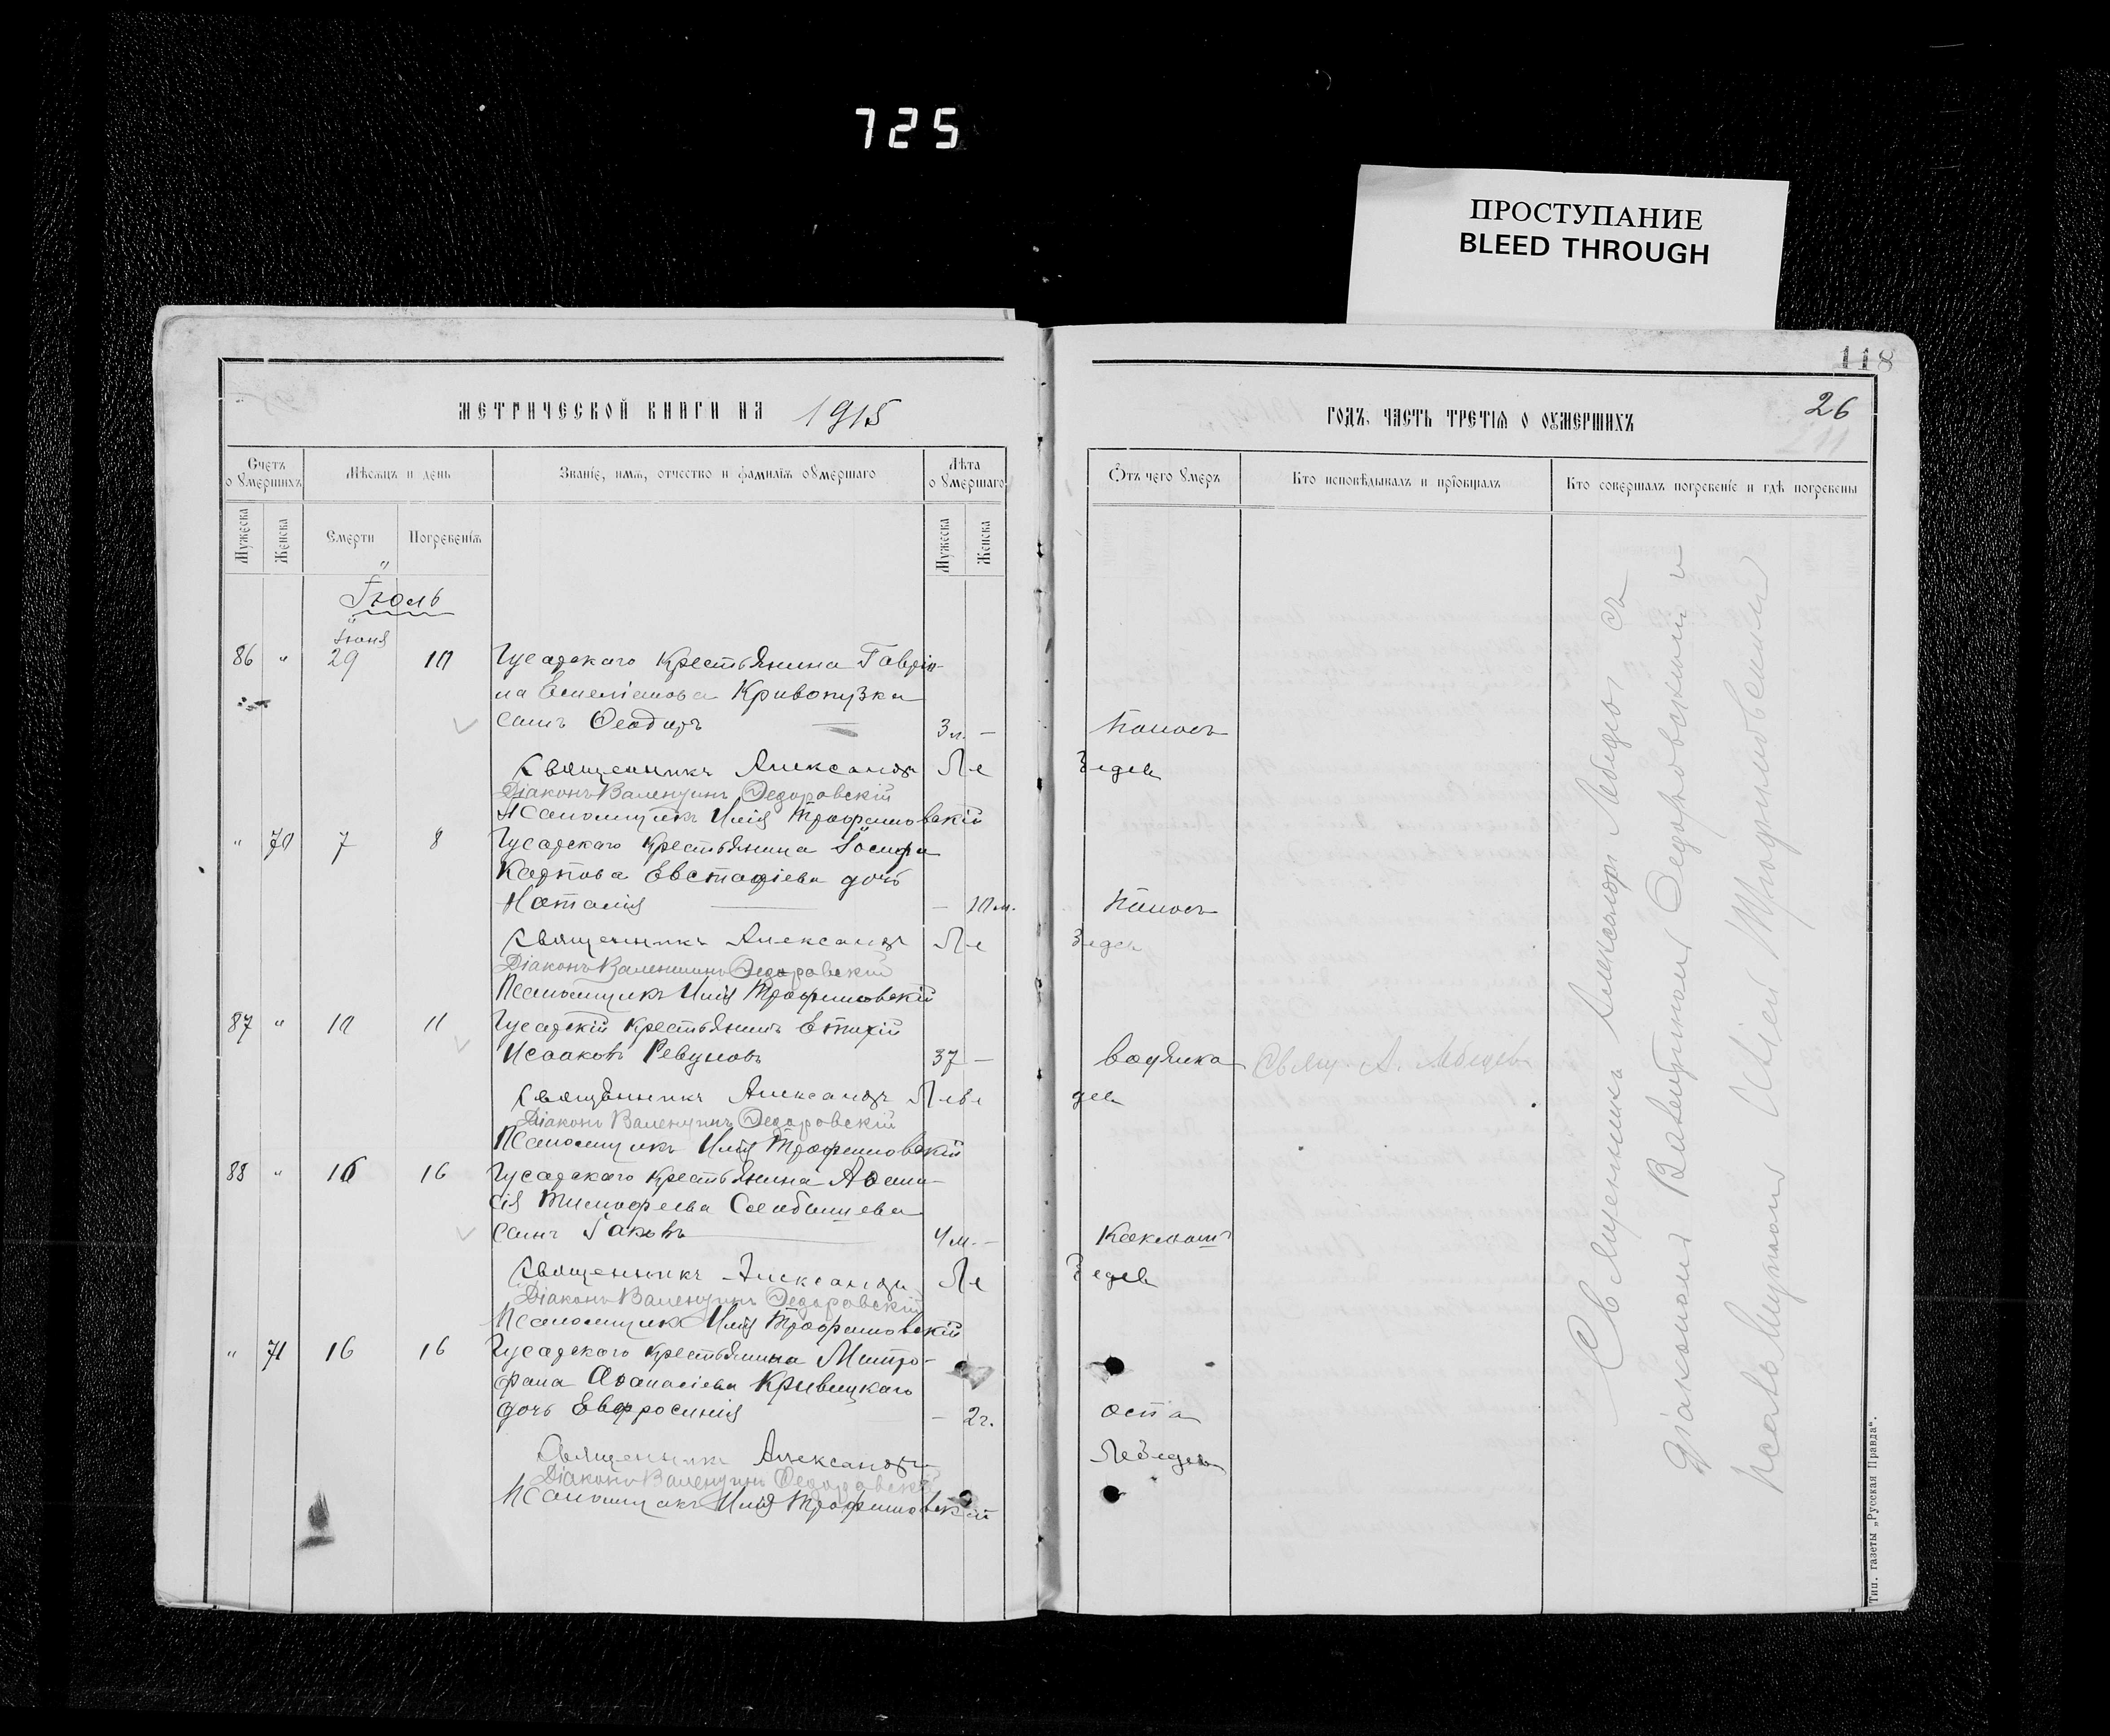 725
ПРОСТУПАНИЕ
BLEED THROUGH
118
МЕТРИЧЕСКОЙ КНИГИ НА 1915
ГОДЪ, ЧАСТЬ ТРЕТІЯ О ОУМЕРШИХЪ
26
Счетъ о умершихъ
Мѣсяцъ и день
Званіе, имя, отчество и фамилія оумершаго
Лѣта оумершаго
Отъ чего умеръ
Кто исповѣдывалъ и пріобщалъ
Кто совершалъ погребеніе и гдѣ погребены
Мужеска
Женска
Смерти
Погребенія
Мужеска
Женска
Іюль
Іюня
86 " 29 10 Гусарскаго крестьянина Гаврі-
ила Емеліанова Кривопузка
сынъ Ѳеодоръ 3 л. — Поносъ
Священникъ Александръ Лебедевъ
Діаконъ Валентинъ Ѳедоровскій
Псаломщикъ Илія Трофимовскій
" 70 7 8 Гусарскаго крестьянина Іосифа
Карпова Евстафіева дочь
Наталія — 10 м. Поносъ
Священникъ Александръ Лебедевъ
Діаконъ Валентинъ Ѳедоровскій
Псаломщикъ Илія Трофимовскій
87 " 10 11 Гусарскій крестьянинъ Евтихій
Исааковъ Ревуновъ 37 — водянка Свящ. А. Лебедевъ
Священникъ Александръ Лебедевъ
Діаконъ Валентинъ Ѳедоровскій
Псаломщикъ Илія Трофимовскій
88 " 16 16 Гусарскаго крестьянина Аѳана-
сія Тимофеева
сынъ Іаковъ 4 м. — Коклюшъ
Священникъ Александръ Лебедевъ
Діаконъ Валентинъ Ѳедоровскій
Псаломщикъ Илія Трофимовскій
" 71 16 16 Гусарскаго крестьянина Митро-
фана Аѳанасіева Кривицкаго
дочь Евфросинія — 2 г. оспа
Священникъ Александръ Лебедевъ
Діаконъ Валентинъ Ѳедоровскій
Псаломщикъ Илія Трофимовскій
Священникъ Александръ Лебедевъ съ
діакономъ Валентиномъ Ѳедоровскимъ и
псаломщикомъ Иліей Трофимовскимъ
Тип. газеты „Русская Правда“.